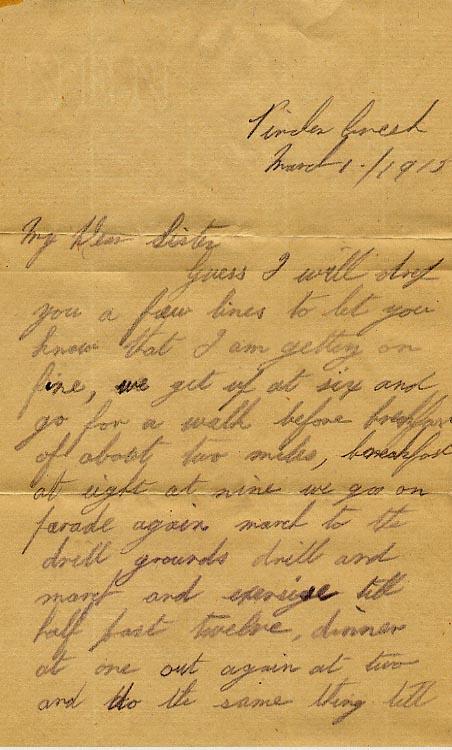 Pincher Creek
March 1-/1915
My Dear Sister
Guess I will drop
you a few lines to let you
know that I am getting on
fine, we get up at six and
go for a walk before breakfast
of about two miles, breakfast
at eight at nine we go on
parade again march to the
drill grounds drill and
march and exersise till
half past twelve, dinner
at one out again at two
and do the same thing till